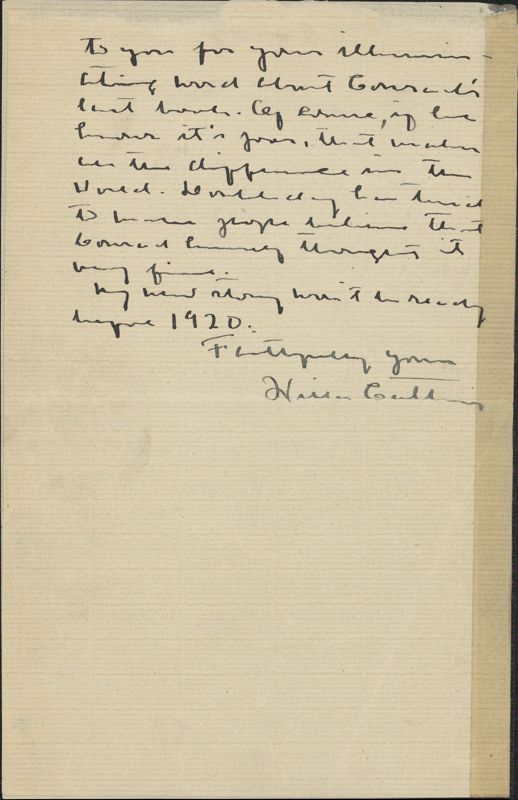 to you for your illumin-
ating word about Conrad's
last book. Of course, if he
knows it's poor, that makes
all the difference in the
World. Doubleday has tried
to make people believe that
Conrad himself thought it
very fine.
My new story won't be ready
before 1920.
Faithfully yours
Willa Cather